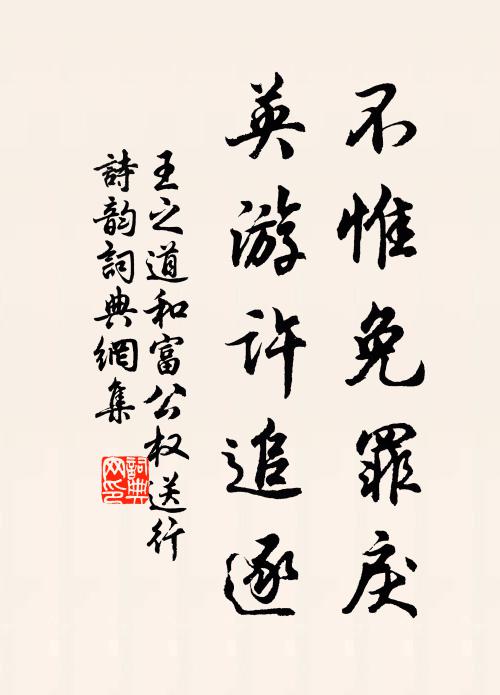 不惟免罪戾
英游许追逐
王之道和富公权送行
詩韵詞典網集
詞典
网印